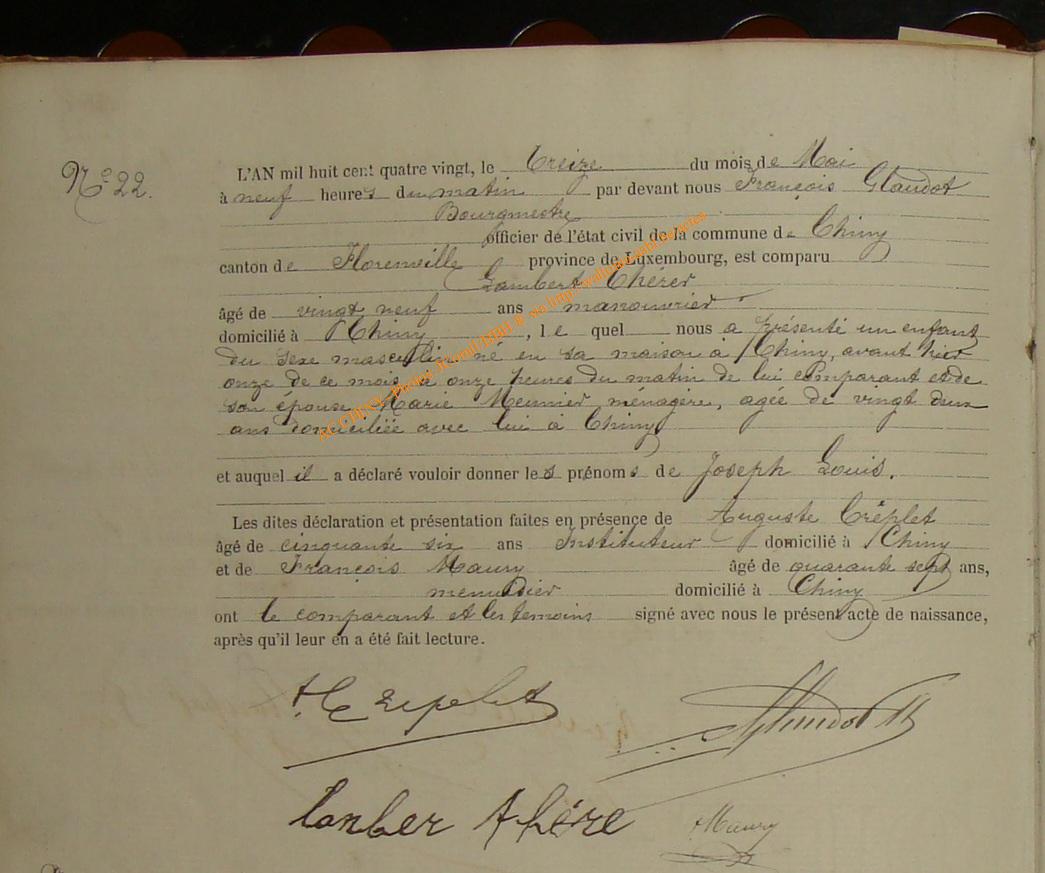 Nº 22.
L'AN mil huit cent quatre vingt, le treize du mois de Mai
à neuf heures du matin par devant nous François Glaudot
Bourgmestre
officier de l'état civil de la commune de Chiny
canton de Florenville province de Luxembourg, est comparu
Lambert Thérer
âgé de vingt neuf ans manouvrier
domicilié à Chiny, le quel nous a présenté un enfant
du sexe masculin né en sa maison à Chiny, avant hier
onze de ce mois à onze heures du matin de lui comparant et de
son épouse Marie Meunier, ménagère, agée de vingt deux
ans domiciliée avec lui à Chiny
et auquel il a déclaré vouloir donner les prénoms de Joseph Louis.
Les dites déclaration et présentation faites en présence de Auguste Créplet
âgé de cinquante six ans Instituteur domicilié à Chiny
et de François Maury âgé de quarante sept ans,
menuisier domicilié à Chiny
ont le comparant et les temoins signé avec nous le présent acte de naissance,
après qu'il leur en a été fait lecture.
A. Crepelet
Glaudot
Lamber Thére
Maury